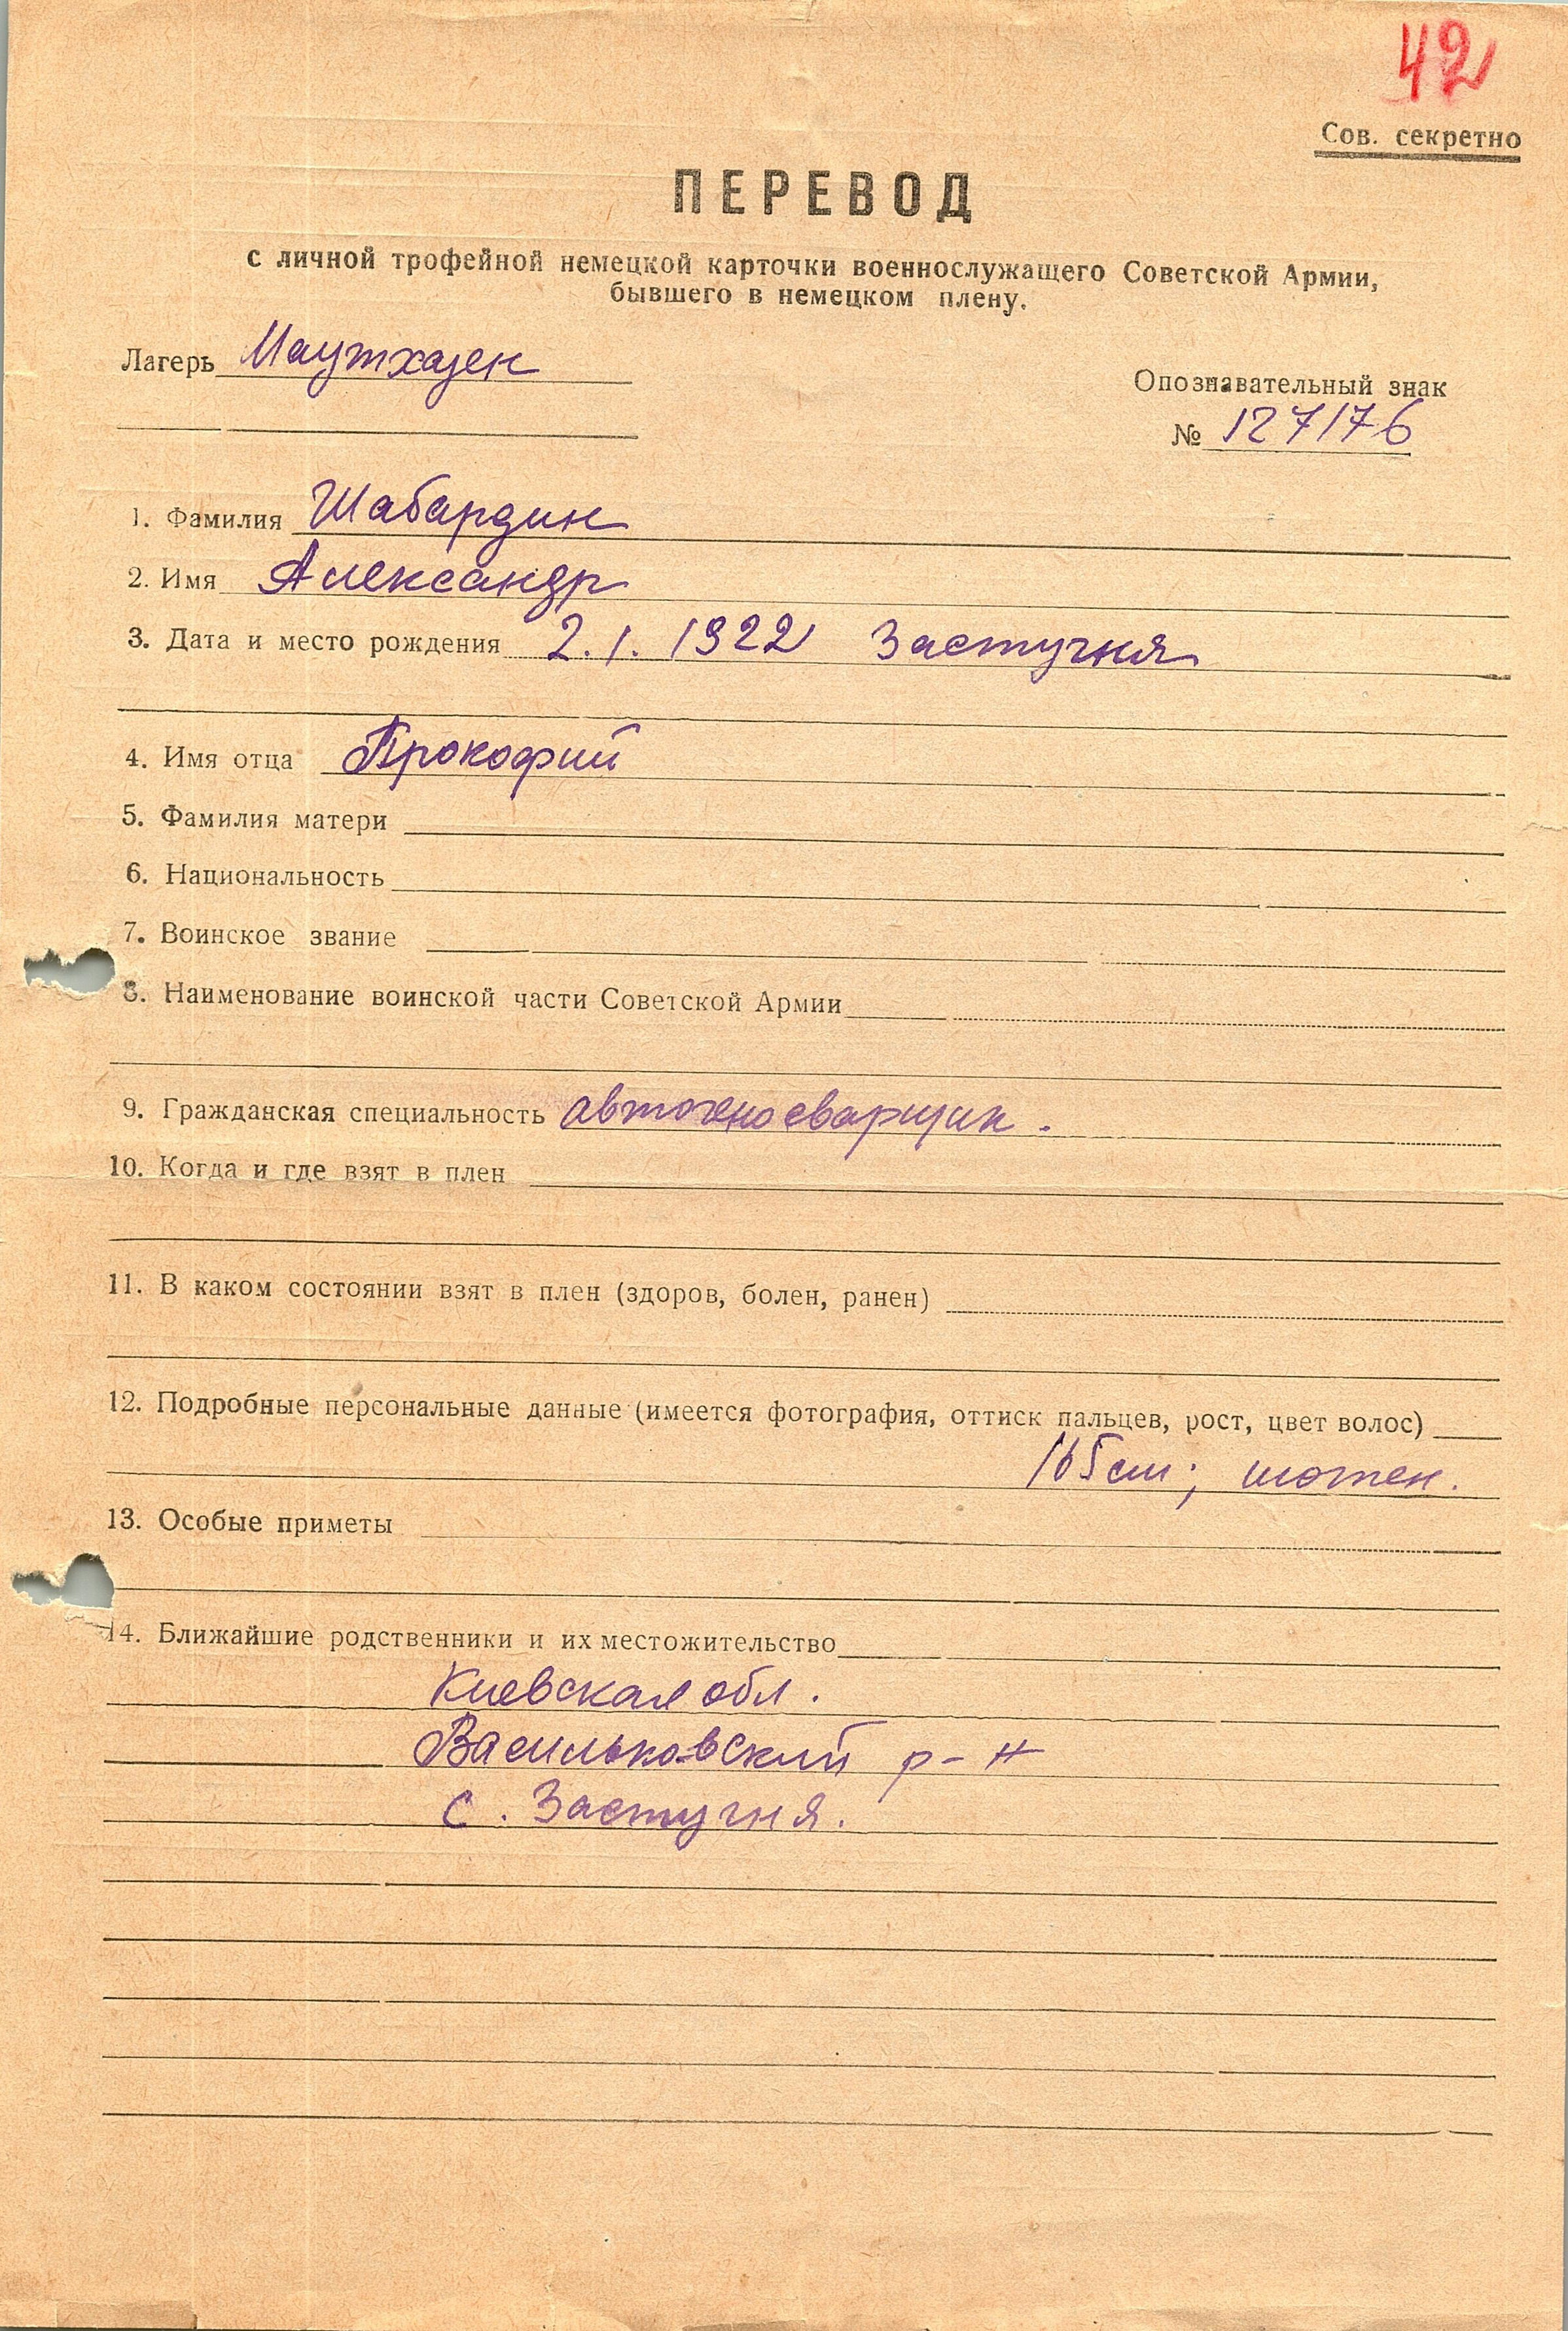 42
Сов. секретно
ПЕРЕВОД
с личной трофейной немецкой карточки военнослужащего Советской Армии,
бывшего в немецком плену.
Лагерь Маутхаузен
Опознавательный знак
№ 127176
1. Фамилия Шабардин
2. Имя Александр
3. Дата и место рождения 2.1.1922 Застугня
4. Имя отца Прокофий
5. Фамилия матери
6. Национальность
7. Воинское звание
8. Наименование воинской части Советской Армии
9. Гражданская специальность
10. Когда и где взят в плен
11. В каком состоянии взят в плен (здоров, болен, ранен)
12. Подробные персональные данные (имеется фотография, оттиск пальцев, рост, цвет волос)
165 см; шатен.
13. Особые приметы
14. Ближайшие родственники и их местожительство
Киевская обл.
Васильковский р-н
с. Застугня.